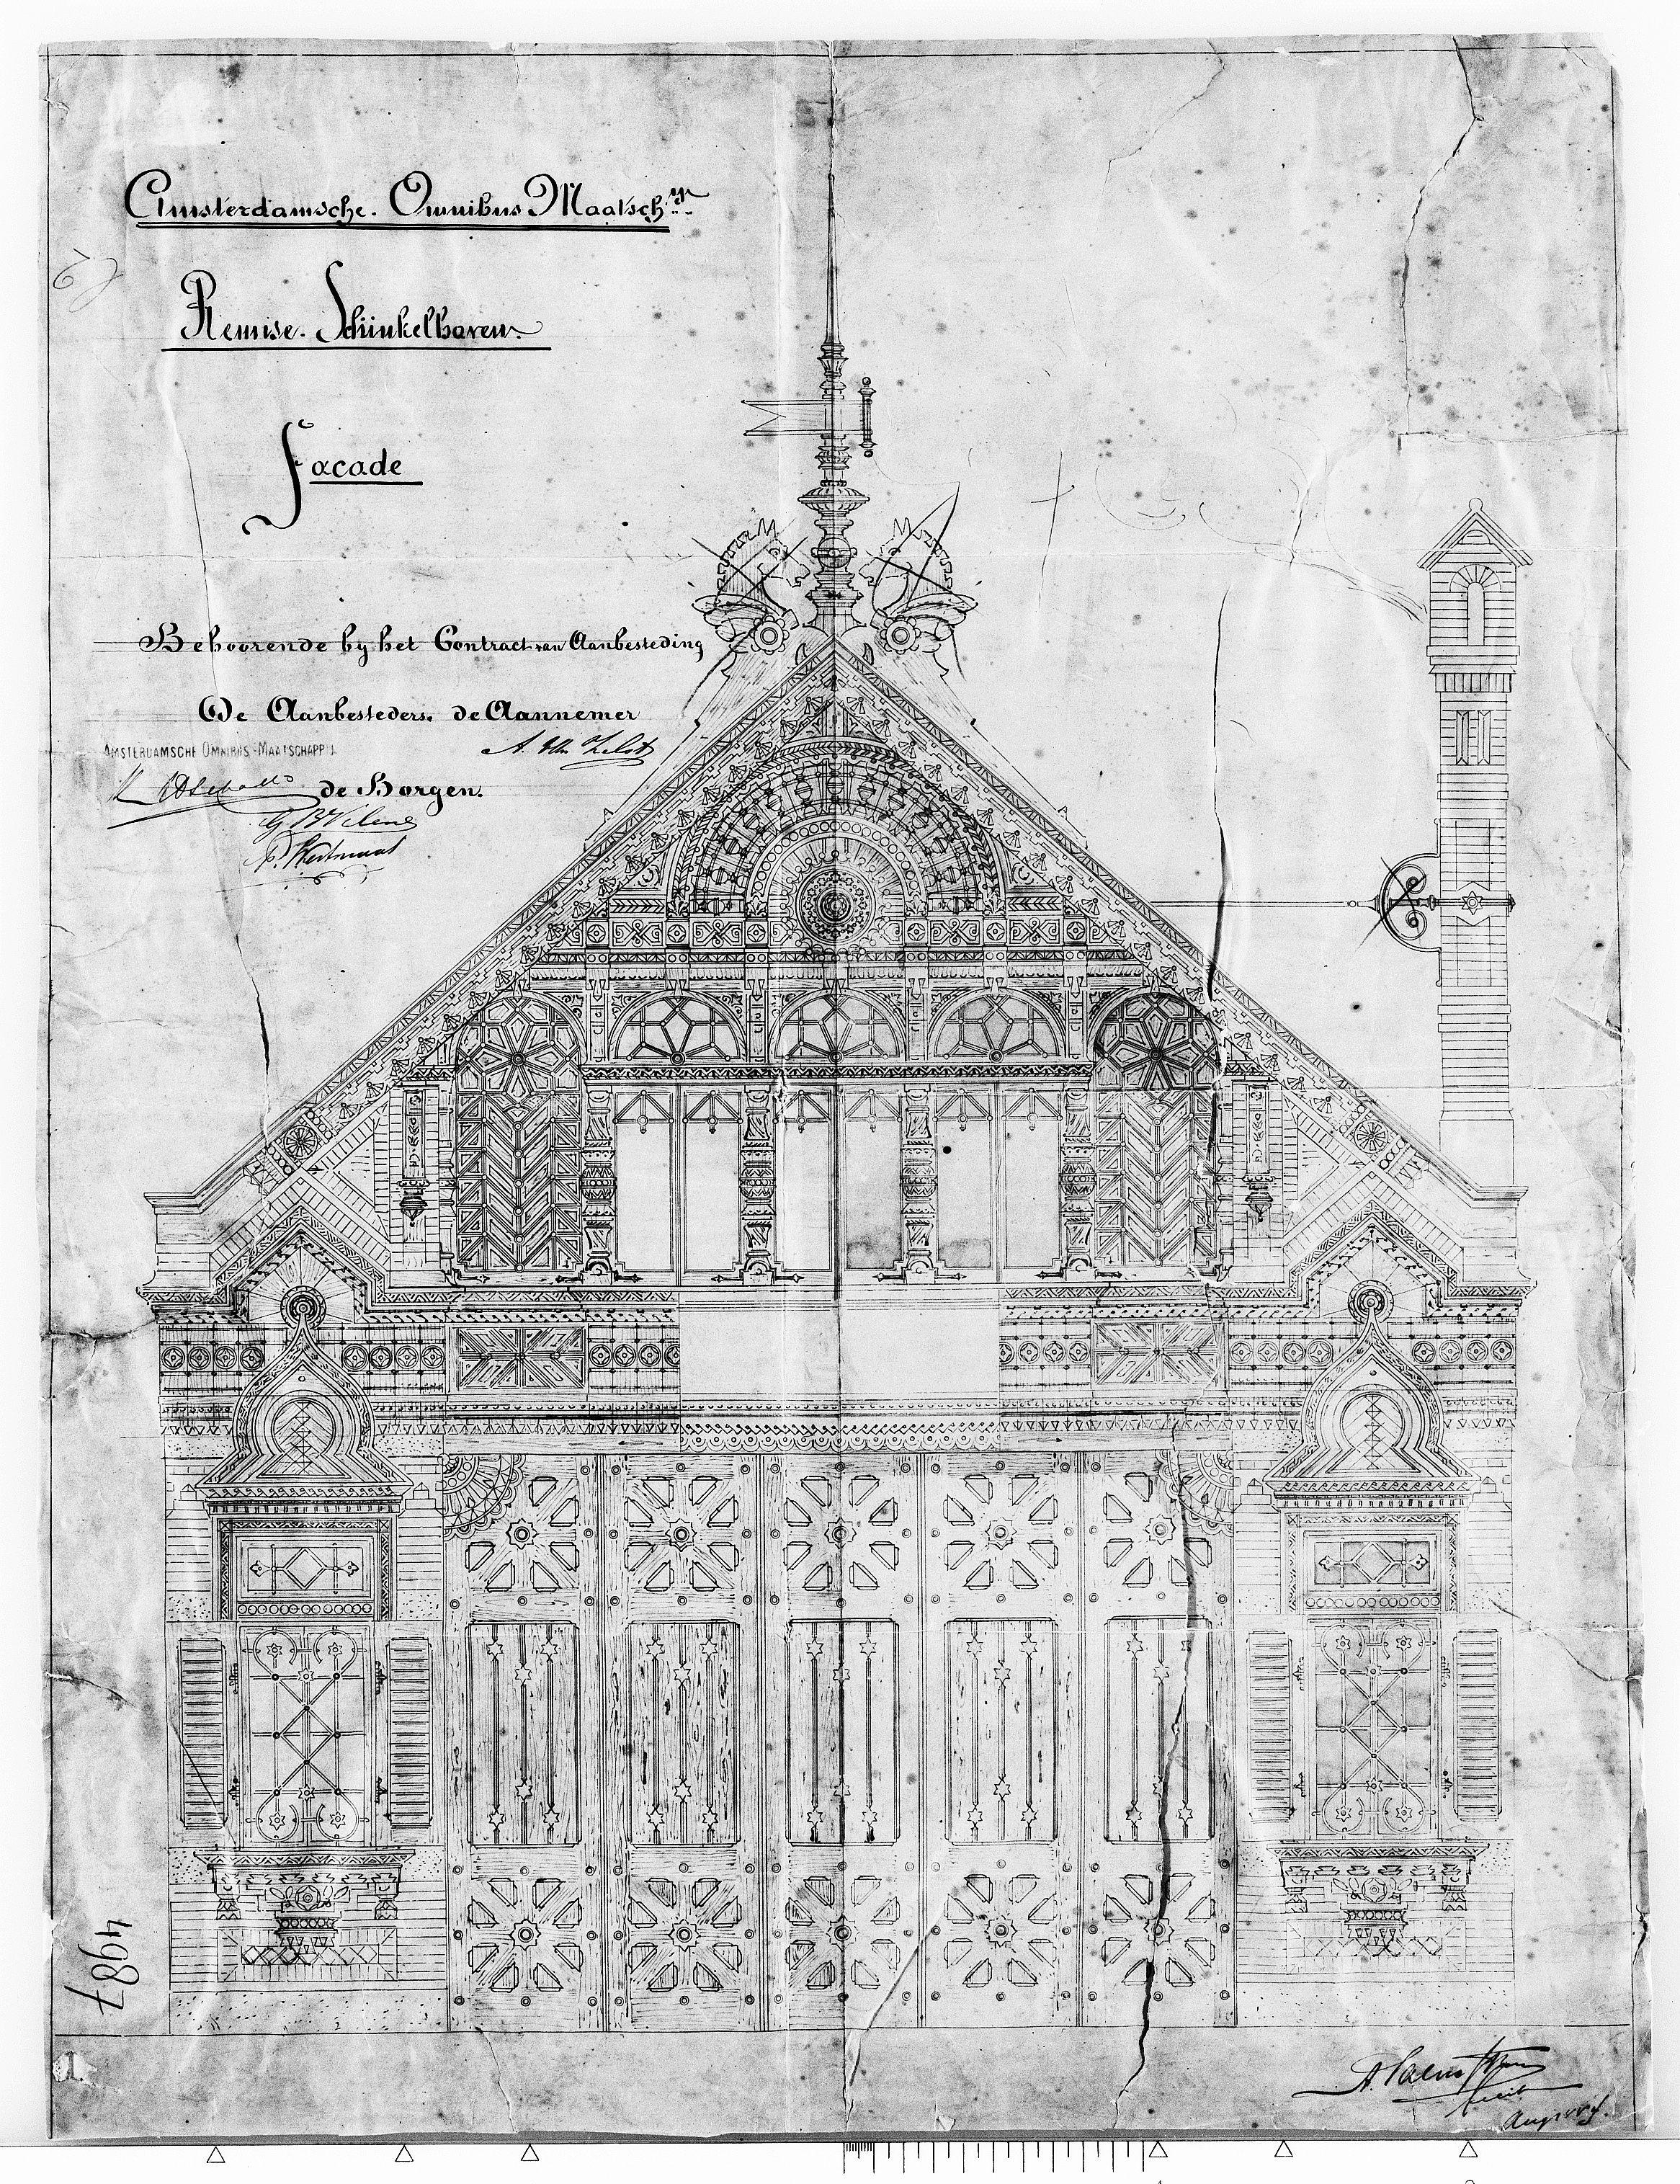 Amsterdamsche. Omnibus Maatschy.
Remise. Schinkelhaven.
Facade
Behoorende by het Contract van Aanbesteding
De Aanbesteders. de Aannemer
AMSTERDAMSCHE OMNIBUS-MAATSCHAPPIJ
de Borgen.
4987
1.
A. Salm
fecit